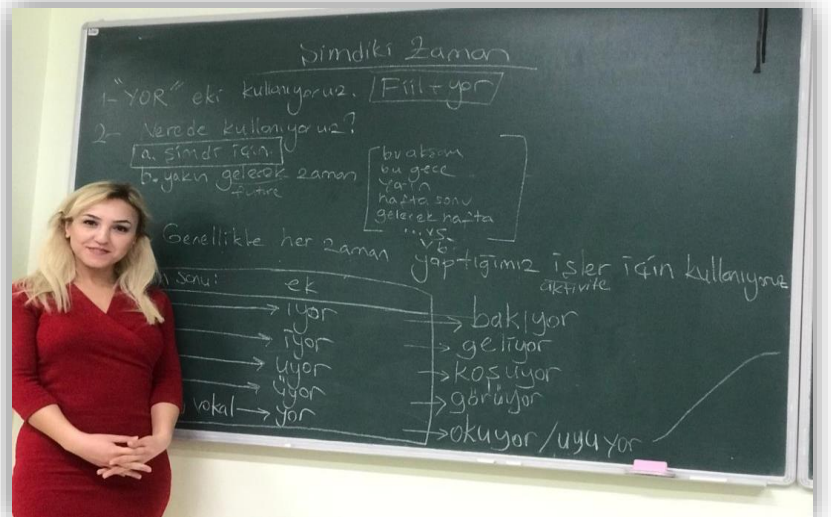 Şimdiki Zaman
1- "YOR" eki kullanıyoruz. Fiil + yor
2- Nerede kullanıyoruz?
a. şimdi için
b. yakın gelecek zaman
future
bu akşam
bu gece
yarın
hafta sonu
gelecek hafta
...vs.
Genellikle her zaman yaptığımız işler için kullanıyoruz
vb.
aktivite
sonu: ek
→ ıyor → bakıyor
→ iyor → geliyor
→ uyor → koşuyor
→ üyor → görüyor
vokal → yor → okuyor / uyuyor